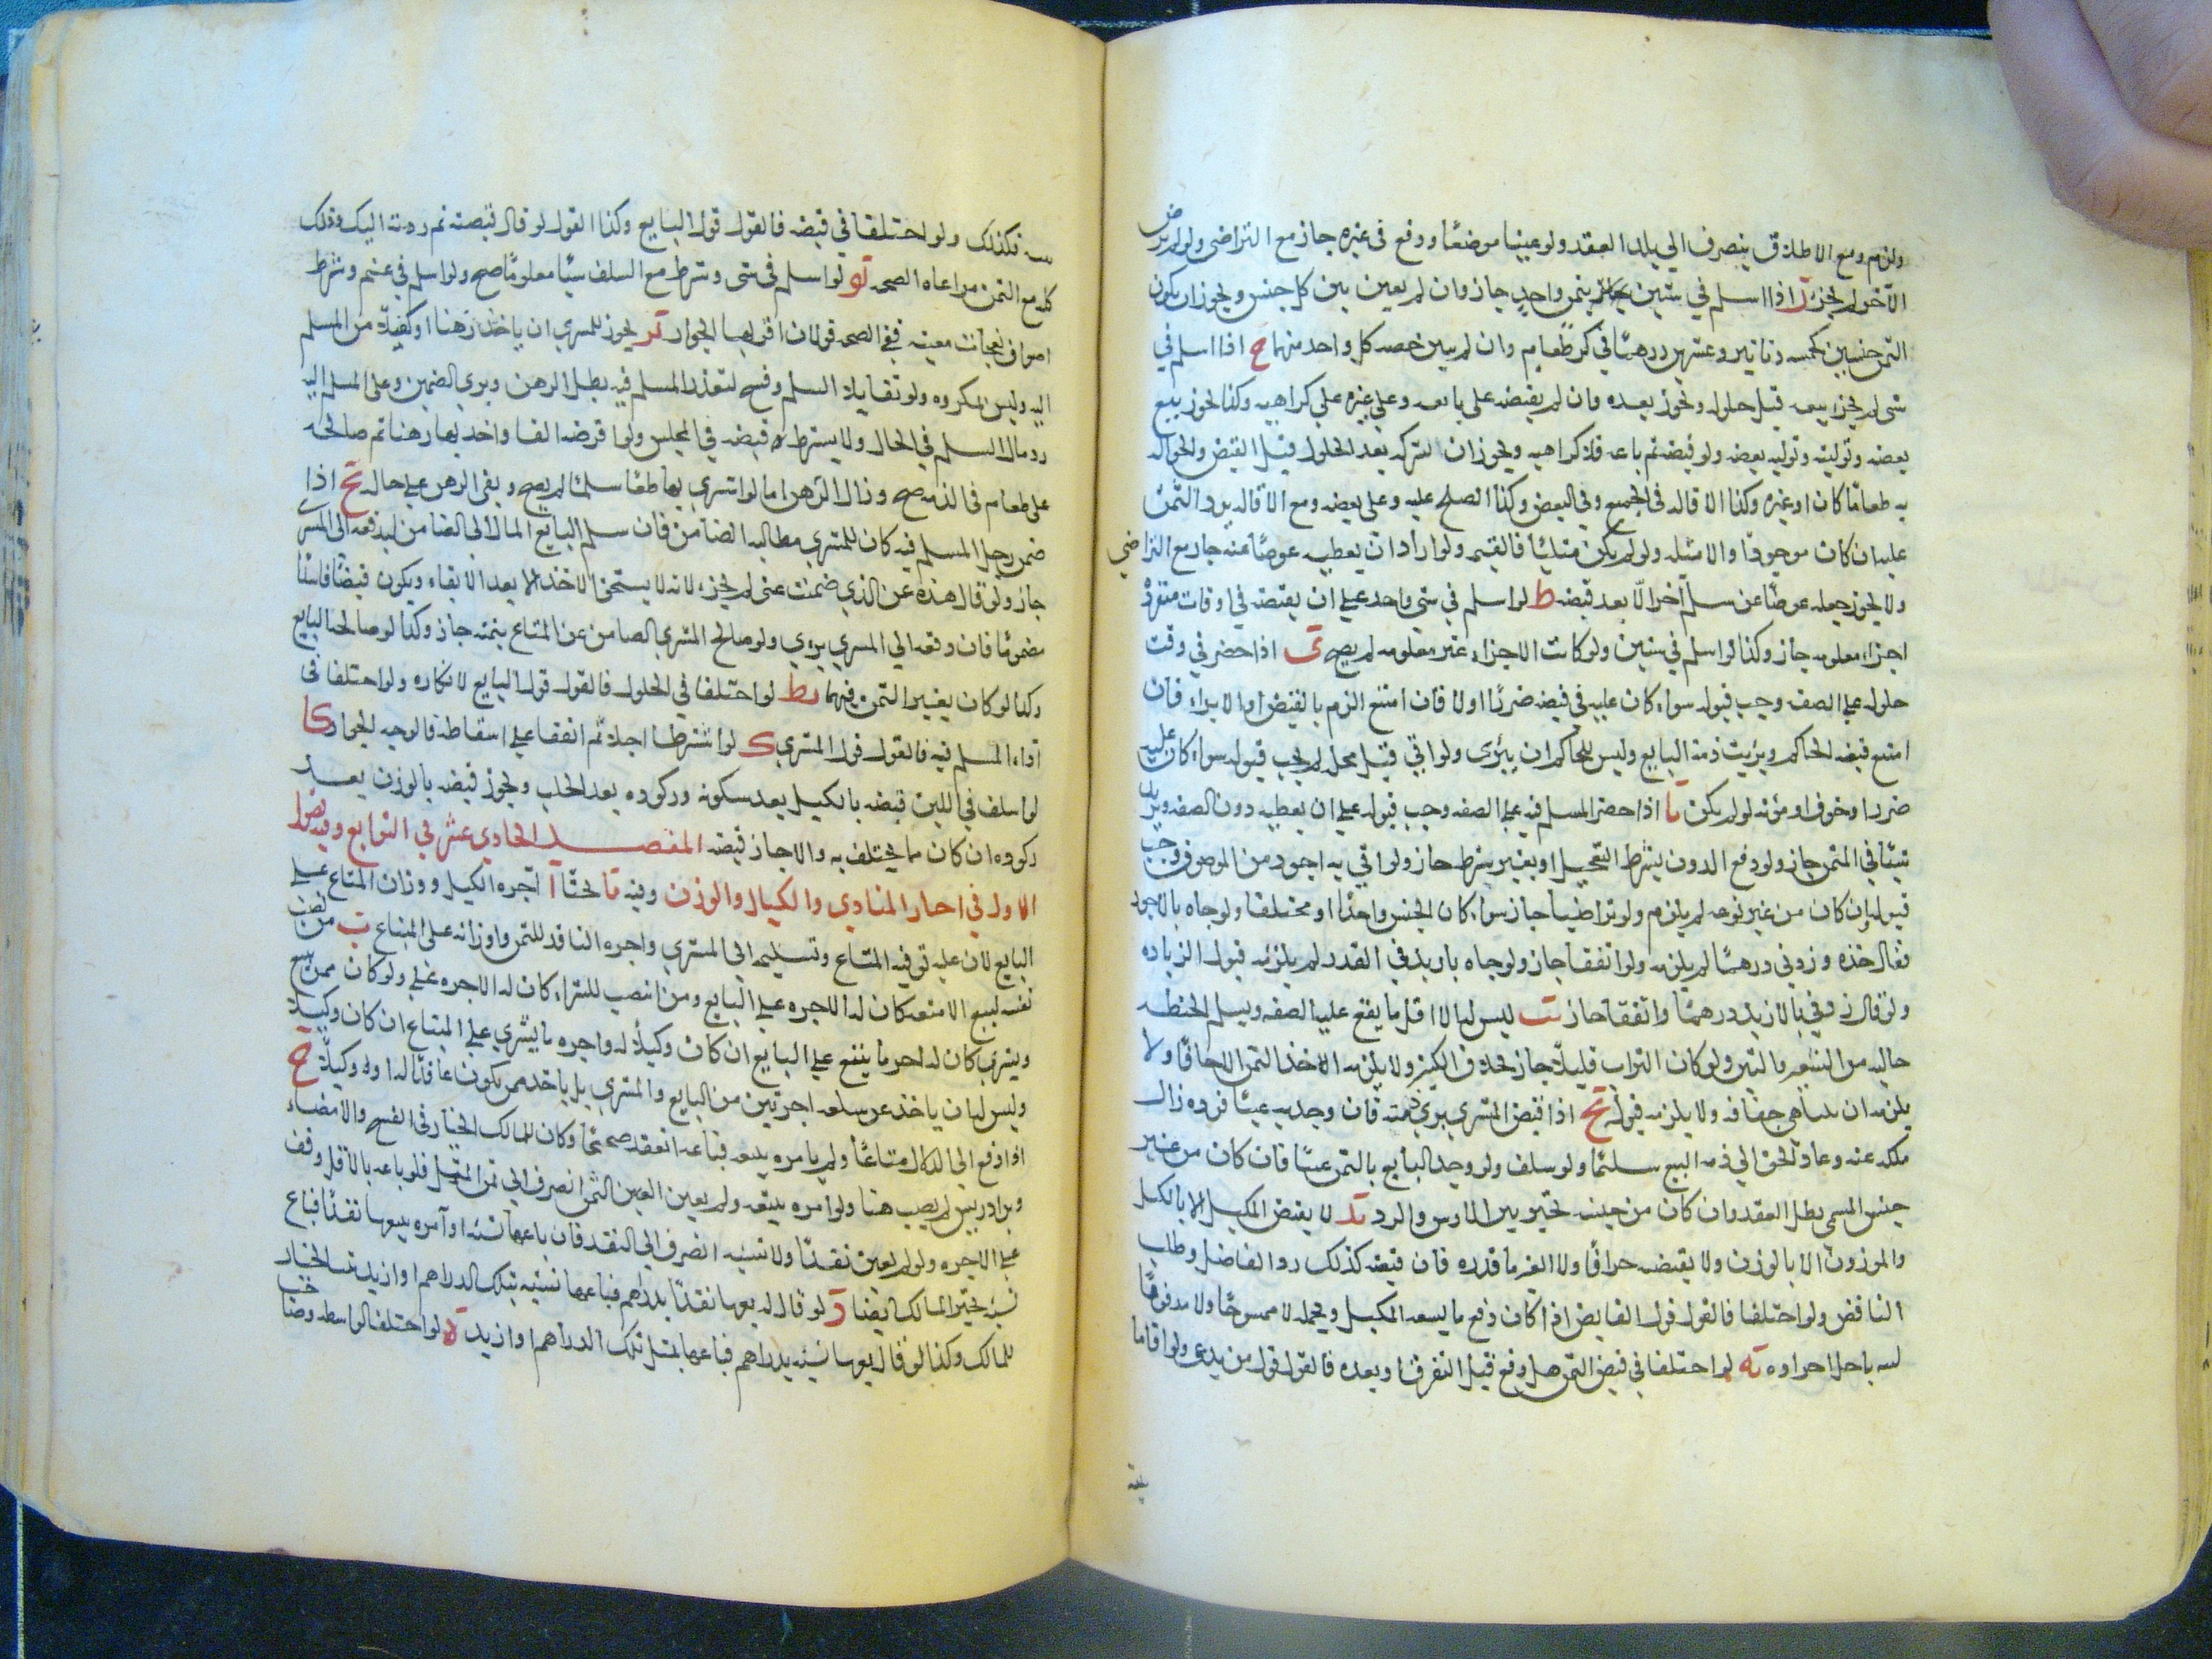 ولزم ومع الاطلاق ينصرف الي بلد العقد ولو عينا موضعًا ودفع في غيره جاز مع التراضي ولو لم يرض
الآخر لم يجز ز اذا اسلم في شيئين بثمن واحد جاز وان لم يعين ثمن كل جنس ويجوز ان يكون
الثمن جنسين كخمسه دنانير وعشرين درهمًا في كر طعام وان لم يبين حصه كل واحد منهما ح اذا اسلم في
شي لم يجز بيعه قبل حلوله ويجوز بعده وان لم يقبضه علي بايعه وعلي غيره علي كراهيه وكذا يجوز بيع
بعضه وتوليته وتوليه بعضه ولو قبضه ثم باعه فلا كراهيه ويجوز ان الشركه بعد الحلول قبل القبض والحواله
به طعامًا كان او غيره وكذا الاقاله في الجميع وفي البعض وكذا الصلح عليه وعلي بعضه ومع الاقاله يرد الثمن
عليه ان كان موجودًا والا مثله ولو لم يكن مثليًا فالقيمه ولو اراد ان يعطيه عوضًا عنه جاز مع التراضي
ولا يجوز جعله عوضًا عن سلم آخر الا بعد قبضه ط لو اسلم في شي واحد علي ان يقبضه في اوقات متفرقه
اجزاء معلومه جاز وكذا لو اسلم في شيئين ولو كانت الاجزاء غير معلومه لم يصح ي اذا حضر في وقت
حلوله علي الصفه وجب قبوله سواء كان عليه في قبضه ضررًا او لا فان امتنع الزم بالقبض او الابراء فان
امتنع قبضه الحاكم وبريت ذمة البايع وليس للحاكم ان يبرئ ولو اتي قبل محله لم يجب قبوله سواء كان عليه
ضررا وخوف او مؤنه لو لم يكن يا اذا حضر المسلم فيه علي الصفه وجب قبوله علي ان يعطيه دون الصفه ويزيد
شيئًا في الثمن جاز ولو دفع الدون بشرط التعجيل او بغير شرط جاز ولو اتي به اجود من الموصوف وجب
قبوله ان كان من غير نوعه لم يلزم ولو تراضيا جاز سواء كان الجنس واحدًا او مختلفا ولو جاه بالاجود
فقال خذه وزدني درهمًا لم يلزمه ولو اتفقا جاز ولو جاه بازيد في القدر لم يلزمه قبول الزياده
ولو قال زدني بالازيد درهمًا واتفقا جاز يب ليس له الا اقل ما يقع عليه الصفه ويسلم الحنطه
خاليه من الشعير والتبن ولو كان التراب قليلًا جاز بخلاف الكثير ولا يلزمه الاخذ التمر الا جافًا ولا
يلزمه ان يتناهي جفافه ولا يلزمه قبوله يج اذا قبض المشتري بري ذمته فان وجد به عيبًا فرده زال
ملكه عنه وعاد الحق الي ذمه البيع سليمًا ولو سلف ولو وجد البايع بالثمن عيبًا فان كان من غير
جنس المسمي بطل العقد وان كان من جنسه تخير بين الارش والرد يد لا يقبض المكيل الا بالكيل
والموزون الا بالوزن ولا يقبضه جزافًا ولا بغير ما قدره فان قبضه كذلك رد الفاضل وطلب
الناقص ولو اختلفا فالقول قول القابض اذا كان دفع ما يسعه المكيل ويحمله لا ممسوحًا ولا مدفوقًا
يه لو اختلفا في قبض الثمن هل وقع قبل التفرق او بعده فالقول قول من يدعي ولو اقاما
فكذلك ولو اختلفا في قبضه فالقول قول البايع وكذا القول لو قال قبضته ثم رددته اليك وذلك
كله مع الثمن مراعاه الصحه يو لو اسلم في شي وشرط مع السلف شيئًا معلومًا صح ولو اسلم في غنم وشرط
اصواف نعجات معينه ففي الصحه قولان اقربهما الجواز يز يجوز للمشتري ان ياخذ رهنا او كفيلًا من المسلم
اليه وليس بمكروه ولو تقايلا السلم وفسخ لتعذر المسلم فيه بطل الرهن وبري الضمين وعلي المسلم اليه
رد مال السلم في الحال ولا يشترط قبضه في المجلس ولو اقرضه الفا واخذ بها رهنا ثم صالحه
علي طعام في الذمه صح وزال الرهن اما لو اشتري بها طعامًا سلمًا لم يصح وبقي الرهن علي حاله يح اذا
ضمن رجل المسلم فيه كان للمشتري مطالبه الضامن فان سلم البايع المال الي الضامن ليدفعه الي المشتري
جاز ولو قال هذه عن الذي ضمنت عني لم يجز لانه لا يستحق الاخذ الا بعد الايفاء ويكون قبضًا فاسدًا
مضمونًا فان دفعه الي المشتري بري ولو صالح المشتري الضامن عن المتاع بثمنه جاز وكذا لو صالحه البايع
وكذا لو كان بغير الثمن فيهما يط لو اختلفا في الحلول فالقول قول البايع لانكاره ولو اختلفا في
اداء المسلم فيه فالقول قول المشتري ك لو اشترطا اجلًا ثم اتفقا علي اسقاطه فالوجه الجواز كا
لو اسلف في اللبن قبضه بالكيل بعد سكونه وركوده بعد الحلب ويجوز قبضه بالوزن بعد
ركوده ان كان مما يختلف به والا جاز قبضه المقصد الحادي عشر في التوابع وفيه فصول
الاول في اجار المنادي والكيال والوزن وفيه يا بحثًا آ اجره الكيل ووزان المتاع علي
البايع لان عليه توفيه المتاع وتسليمه الي المشتري واجره الناقد للثمن ووزانه علي المبتاع ب من نصب
نفسه لبيع الامتعه كان له الاجره علي البايع ومن انتصب للشراء كان له الاجره علي ولو كان ممن يبيع
ويشتري كان له اجر ما يبيع علي البايع ان كان وكيلًا له واجره ما يشتري علي المبتاع ان كان وكيلًا
وليس له ان ياخذ عن سلعه اجرتين من البايع والمشتري بل ياخذ ممن يكون عاقدًا له او وكيلًا ج
اذا دفع الي الدلال متاعًا ولم يامره ببيعه فباعه انعقد صحيحًا وكان للمالك الخيار في الفسخ والامضاء
ولو امره ببيعه ولم يعين الثمن انصرف الي ثمن المثل فلو باعه بالاقل وقف
علي الاجره ولو لم يعين نقدًا ولا نسيئه انصرف الي النقد فان باعها نسيئه او آمره ببيعها نقدًا فباع
نسيئه تخير المالك ايضا د لو قال له بعها نقدًا بدراهم فباعها نسيئه بتلك الدراهم او ازيد الخيار
للمالك وكذا لو قال بعها نسيئه بدراهم فباعها بمثل تلك الدراهم او ازيد ه لو اختلف الواسطه وصاحب